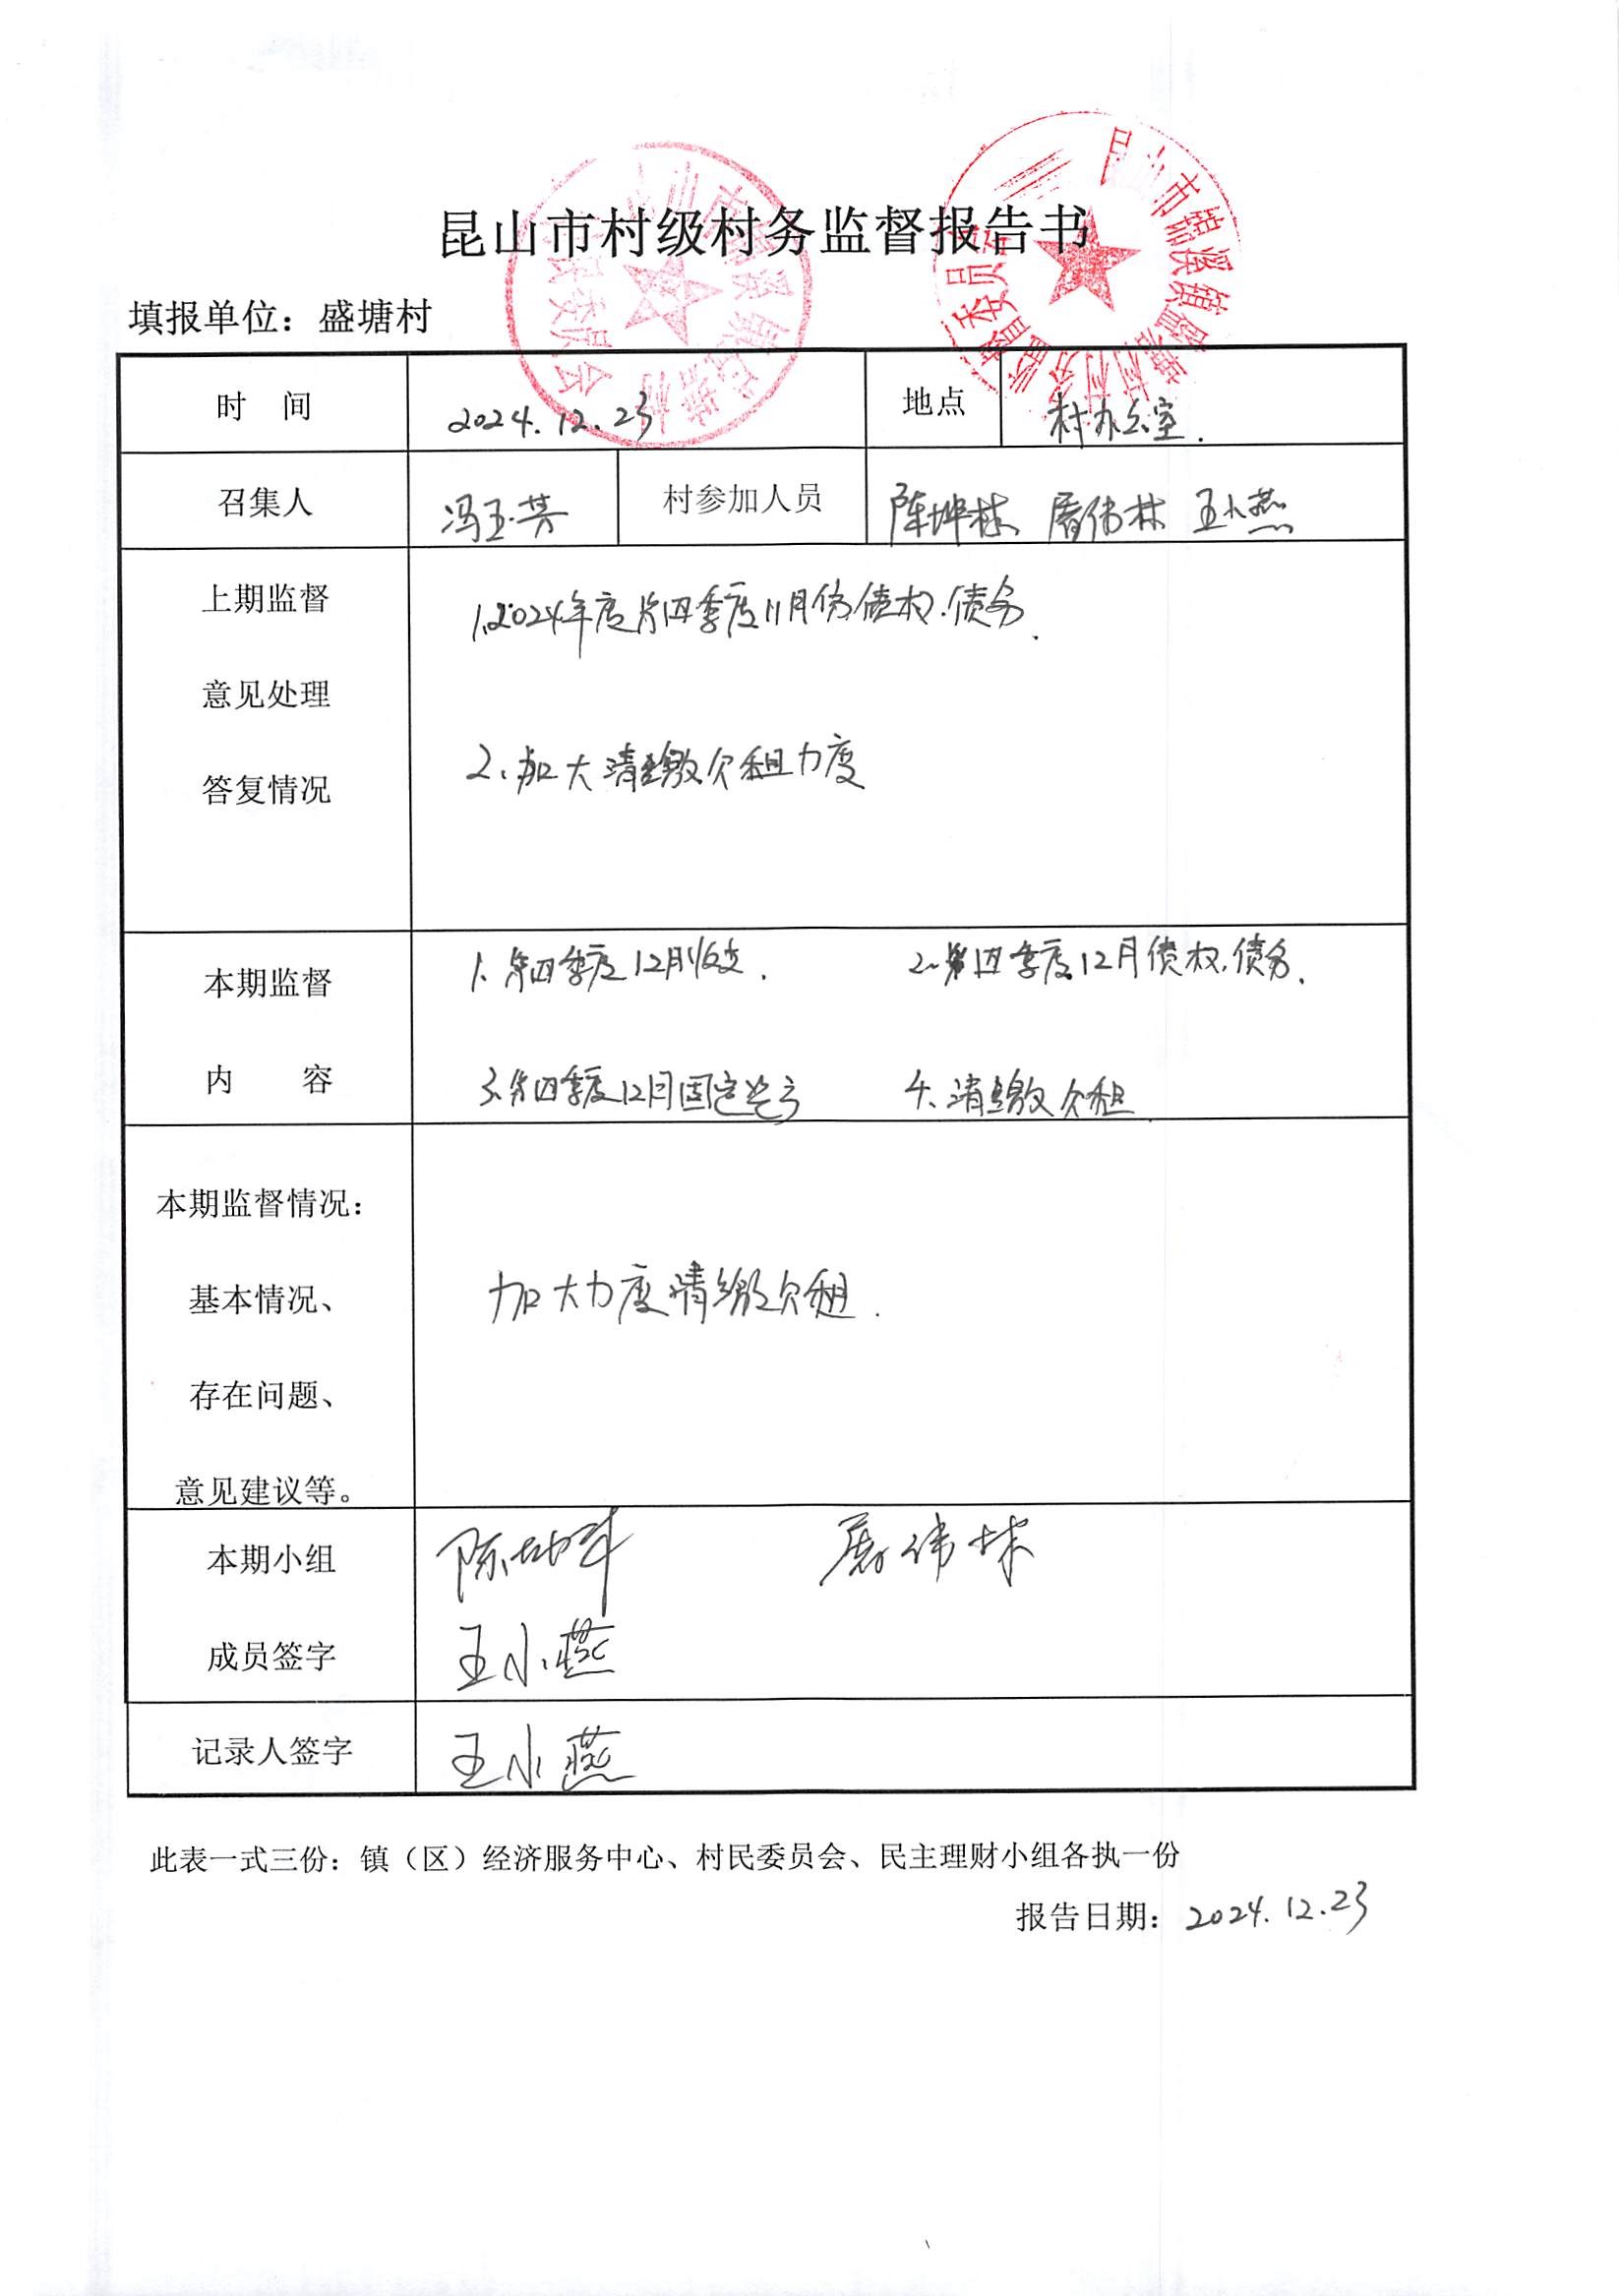 昆山市村级村务监督报告书
填报单位：盛塘村
时 间 2024.12.23 地点 村办公室.
召集人 冯玉芳 村参加人员 陈坤林 屠伟林 王小燕
上期监督
意见处理
答复情况
1.2024年度第四季度11月份债权.债务.
2.加大清缴欠租力度
本期监督
内 容
1.第四季度12月收支. 2.第四季度12月债权.债务.
3.第四季度12月固定资产 4.清缴欠租
本期监督情况：
基本情况、
存在问题、
意见建议等。
加大力度清缴欠租.
本期小组
成员签字
屠伟林
王小燕
记录人签字 王小燕
此表一式三份：镇（区）经济服务中心、村民委员会、民主理财小组各执一份
报告日期：2024.12.23
昆山市锦溪镇盛塘村村务监督委员会